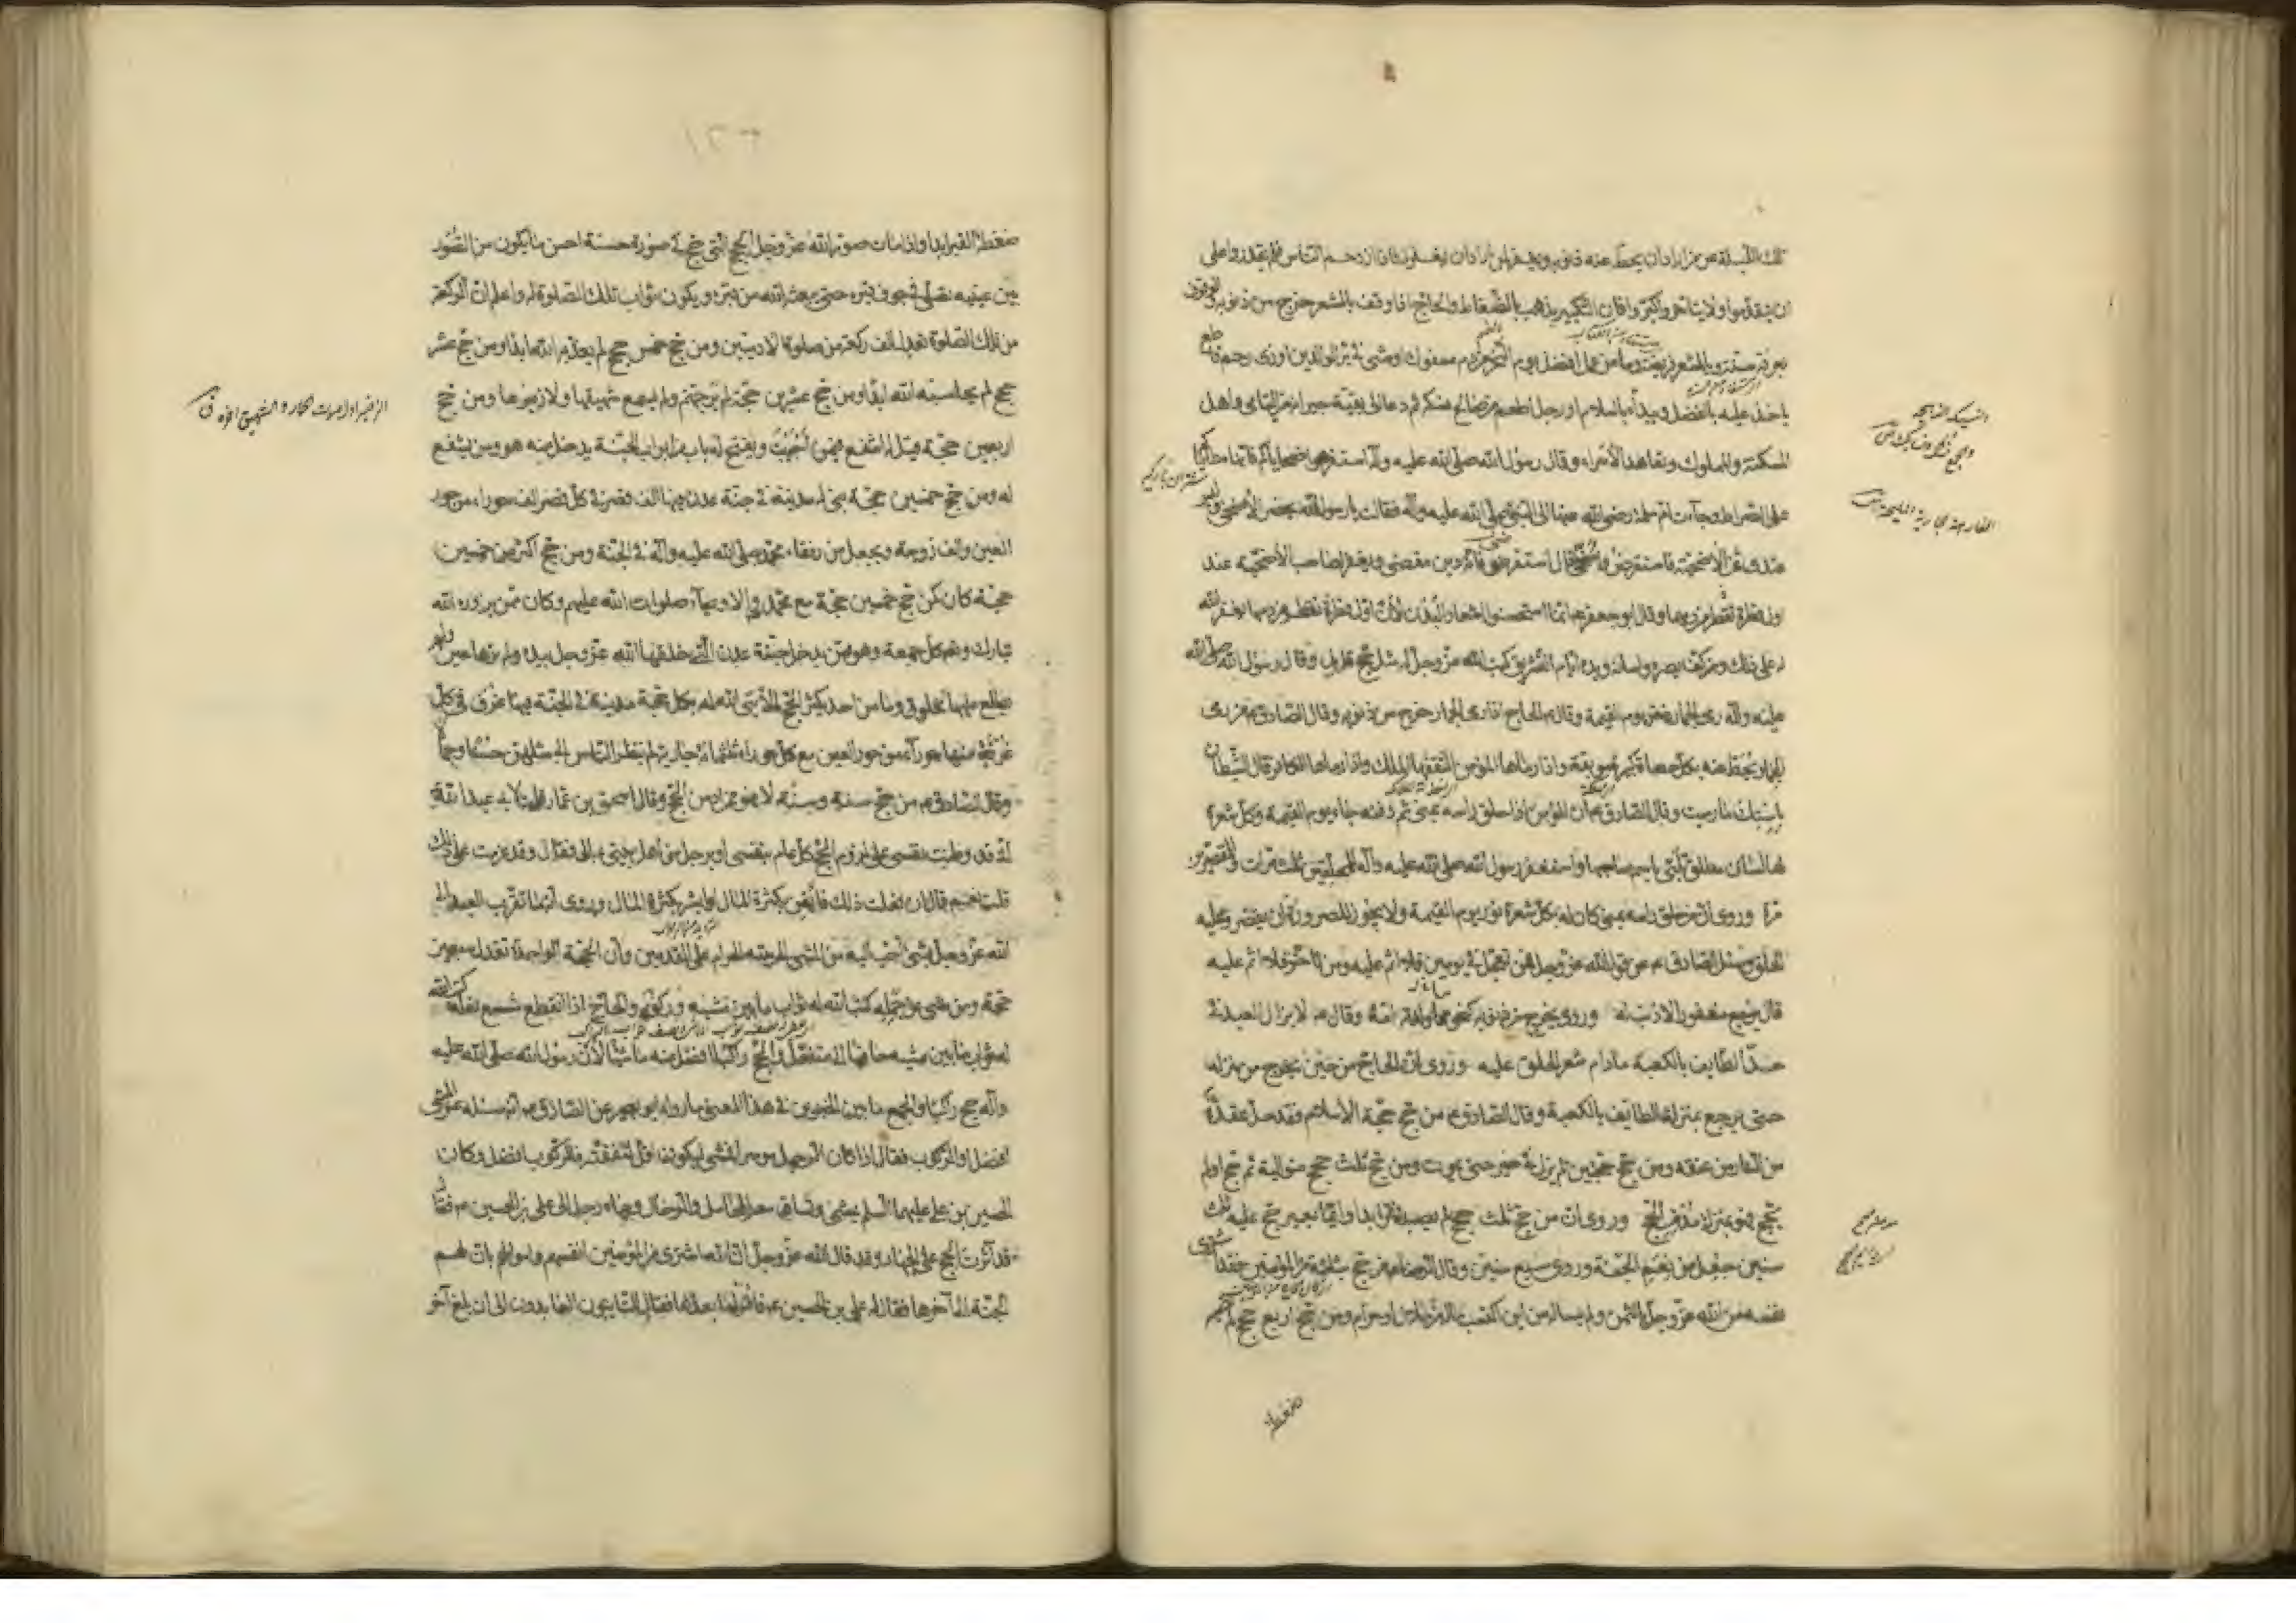 تلك الليلة عمن اراد ان يحط عنه ذنوبه ويغفر لمن اراد ان يغفر له فاذا ازدحم الناس فلم يقدروا على
ان يتقدموا ولا يتاخروا كبروا فان التكبير يذهب بالضغاط والحاج اذا وقف بالمشعر خرج من ذنوبه والوقوف
بعرفة سنة وبالمشعر فريضة وما من عمل افضل يوم النحر من دم مسفوك او مشى في بر الوالدين او ذى رحم قاطع
ياخذ عليه بالفضل ويبدأه بالسلام او رجل اطعم من صالح نسكه ثم دعا الى بقيته جيرانه من اليتامى واهل
المسكنة والمملوك وتعاهد الاسراء وقال رسول الله صلى الله عليه وآله استفرهوا ضحاياكم فانها مطاياكم
على الصراط وجاءت ام سلمة رضى الله عنها الى النبي صلى الله عليه وآله فقالت يا رسول الله يحضر الاضحى وليس
عندى ثمن الاضحية فاستقرض واضحى قال استقرضى فانه دين مقضى ويغفر لصاحب الاضحية عند
اول قطرة تقطر من دمها وقال ابو جعفر
له على ذلك ومن كف بصره ولسانه ويده ايام التشريق كتب الله عز وجل له مثل حج قابل وقال رسول الله صلى الله
عليه وآله رمى الجمار ذخر يوم القيمة وقال الحاج اذا رمى الجمار خرج من ذنوبه وقال الصادق من رمى
الجمار يحط عنه بكل حصاة كبيرة موبقة واذا رماها المؤمن التقفها الملك واذا رماها الكافر قال الشيطان
باستك ما رميت وقال الصادق ان المؤمن اذا حلق راسه بمنى ثم دفنه جاء يوم القيمة وكل شعرة
لها لسان مطلق تلبى باسم صاحبها واستغفر رسول الله صلى الله عليه وآله للمحلقين ثلث مرات وللمقصرين
مرة وروى ان من حلق راسه بمنى كان له بكل شعرة نور يوم القيمة ولا يجوز للصرورة ان يقصر وعليه
الحلق وسئل الصادق عن قول الله عز وجل فمن تعجل في يومين فلا اثم عليه ومن تاخر فلا اثم عليه
قال يرجع مغفورا لا ذنب له وروى يخرج من ذنوبه كنحو مما ولدته امه وقال لا يزال العبد في
حد الطايف بالكعبة مادام شعر الحلق عليه وروى ان الحاج من حين يخرج من منزله
حتى يرجع بمنزلة الطايف بالكعبة وقال الصادق من حج حجة الاسلام فقد حل عقدة
من النار من عنقه ومن حج حجتين لم يزل في خير حتى يموت ومن حج ثلث حجج متوالية ثم حج او لم
يحج فهو بمنزلة مدمن الحج وروى ان من حج ثلث حجج لم يصبه فقر ابدا وايما بعير حج عليه ثلث
سنين جعل من نعم الجنة وروى سبع سنين وقال الرضا من حج بثلثة من المؤمنين فقد اشترى
نفسه من الله عز وجل بالثمن ولم يساله من اين اكتسب ماله من حلال او حرام ومن حج اربع حجج لم تصبه
ضغطة
ضغطة القبر ابدا واذا مات صور الله عز وجل الحج التى حج في صورة حسنة احسن ما يكون من الصور
بين عينيه تصلى في جوف قبره حتى يبعثه الله من قبره ويكون ثواب تلك الصلوة له واعلم ان الركعة
من تلك الصلوة تعدل الف ركعة من صلوة الادميين ومن حج خمس حجج لم يعذبه الله ابدا ومن حج عشر
حجج لم يحاسبه الله ابدا ومن حج عشرين حجة لم ير جهنم ولم يسمع شهيقها ولا زفيرها ومن حج
اربعين حجة قيل له اشفع فيمن احببت ويفتح له باب من ابواب الجنة يدخل منه هو ومن يشفع
له ومن حج خمسين حجة بنى له مدينة في جنة عدن فيها الف قصر في كل قصر الف حوراء من حور
العين والف زوجة ويجعل من رفقاء محمد صلى الله عليه وآله في الجنة ومن حج اكثر من خمسين
حجة كان كمن حج خمسين حجة مع محمد والاوصياء صلوات الله عليهم وكان ممن يزوره الله
تبارك وتعالى كل جمعة وهو ممن يدخل جنة عدن التى خلقها الله عز وجل بيده ولم ترها عين ولم
يطلع عليها مخلوق وما من احد يكثر الحج الا بنى الله له بكل حجة مدينة في الجنة فيها غرف في كل
غرفة منها حوراء من حور العين مع كل حوراء ثلثمائة جارية لم ينظر الناس الى مثلهن حسنا وجمالا
وقال الصادق من حج سنة وسنة لا فهو ممن ادمن الحج وقال اسحق بن عمار قلت لابى عبد الله
انى قد وطنت نفسى على لزوم الحج كل عام بنفسى او برجل من اهل بيتى بمالى فقال وقد عزمت على ذلك
قلت نعم قال ان فعلت ذلك فايقن بكثرة المال او ابشر بكثرة المال وروى انه ما تقرب العبد الى
الله عز وجل بشئ احب اليه من المشى الى بيته الحرام على القدمين وان الحجة الواحدة تعدل سبعين
حجة ومن مشى عن جمله كتب الله له ثواب ما بين مشيه وركوبه والحاج اذا انقطع شسع نعله كتب الله
له ثواب ما بين مشيه حافيا الى متنعل والحج راكبا افضل منه ماشيا لان رسول الله صلى الله عليه
وآله حج راكبا والجمع ما بين الخبرين في هذا المعنى ما رواه ابو بصير عن الصادق انه سئله عن المشى
افضل او الركوب فقال اذا كان الرجل موسرا فمشى ليكون اقل لنفقته فالركوب افضل وكان
الحسين بن على عليهما السلم يمشى وتساق معه المحامل والرحال وجاء رجل الى على بن الحسين فقال
قد آثرت الحج على الجهاد وقد قال الله عز وجل ان الله اشترى من المؤمنين انفسهم واموالهم بان لهم
الجنة الى آخرها فقال له على بن الحسين فاقرأ ما بعدها فقال التائبون العابدون الى ان بلغ آخر